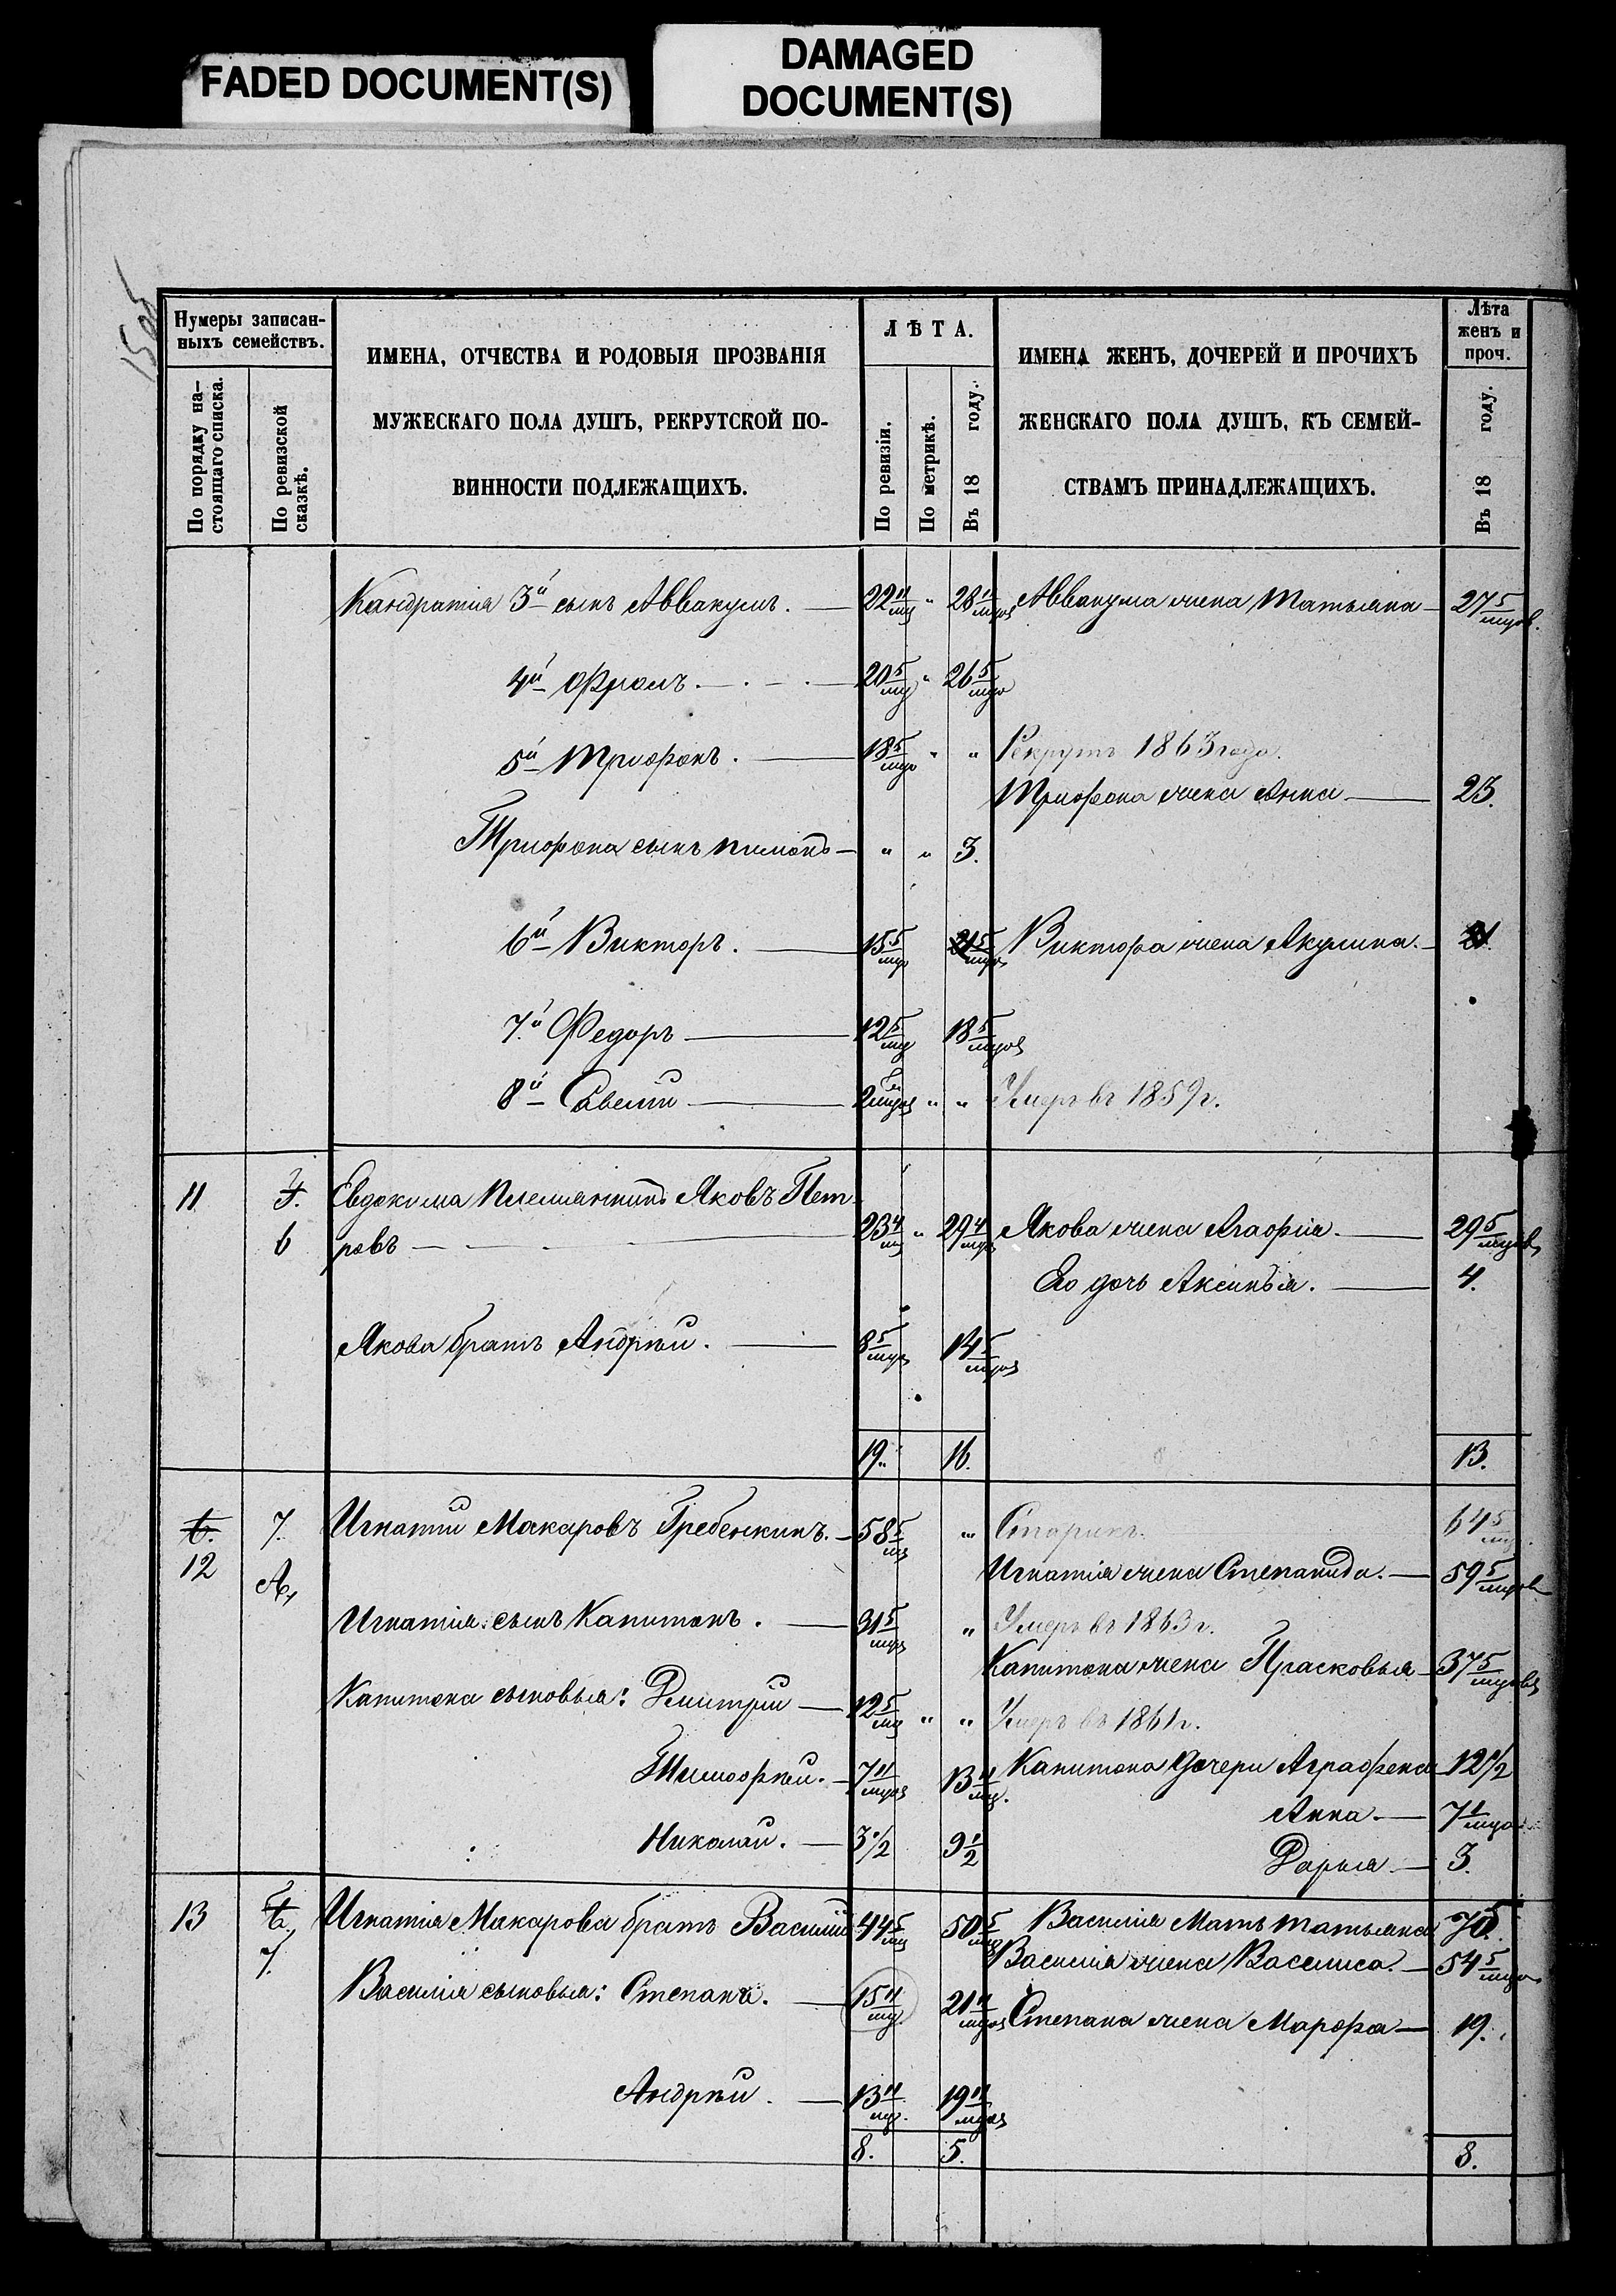 FADED DOCUMENT(S)
DAMAGED
DOCUMENT(S)
Нумеры записан-
ныхъ семействъ.
По порядку на-
стоящаго списка.
По ревизской
сказкѣ.
ИМЕНА, ОТЧЕСТВА И РОДОВЫЯ ПРОЗВАНІЯ
МУЖЕСКАГО ПОЛА ДУШЪ, РЕКРУТСКОЙ ПО-
ВИННОСТИ ПОДЛЕЖАЩИХЪ.
ЛѢТА.
По ревизіи.
По метрикѣ.
Въ 18 году.
ИМЕНА ЖЕНЪ, ДОЧЕРЕЙ И ПРОЧИХЪ
ЖЕНСКАГО ПОЛА ДУШЪ, КЪ СЕМЕЙ-
СТВАМЪ ПРИНАДЛЕЖАЩИХЪ.
Лѣта
женъ и
проч.
Въ 18 году.
Кандратія 3й сынъ Аввакумъ. — 22 11/мц " 28 11/мцов Аввакума жена Татьяна — 27 5/мцов.
4й Фролъ — 20 5/мц " 26 5/мцо
5й Трифонъ. — 18 5/мцо " " Рекрутъ 1863 года.
Трифона жена Анна — 23.
Трифона сынъ — " " 3.
6й Викторъ. — 15 5/мцо 21 5/мцов Виктора жена Акулина. — 21.
7й Федоръ — 12 5/мц 18 5/мцов
8й Савелій — 2 мцов " " Умеръ въ 1859 г.
11 6 Евдокима племянникъ Яковъ Пет-
ровъ — 23 4/мц " 29 4/мцов Якова жена Агафія. — 29 5/мцовъ
Его дочь Аксинья. — 4.
Якова братъ Андрѣй. — 8 5/мцов 14 5/мцов
19. 16. 13.
12 7. Игнатій Макаровъ Гребенкинъ. — 58 5/мц " Старикъ. 64 5/мц.
А, Игнатія жена Степанида. — 59 5/мцов
Игнатія: сынъ Капитонъ. — 31 5/мцов " Умеръ въ 1863 г.
Капитона жена Прасковья — 37 5/мцовъ
Капитона сыновья: Дмитрій — 12 5/мц " " Умеръ въ 1861 г.
Тимофѣй. — 7 11/мцов 13 11/мц. Капитона дочери Аграфена — 12 1/2
Анна. — 7 1/мца
Николай. — 3 1/2 9 1/2 Дарья. — 3.
13 7. Игнатія Макарова братъ Василій 44 5/мц 50 5/мцо Василія мать Татьяна 70.
Василія жена Василиса. — 54 5/мцов
Василія сыновья: Степанъ. — 15 11/мц. 21 11/мцов Степана жена Марфа — 19.
Андрѣй. — 13 11/мц. 19 11/мцов
8. 5. 8.